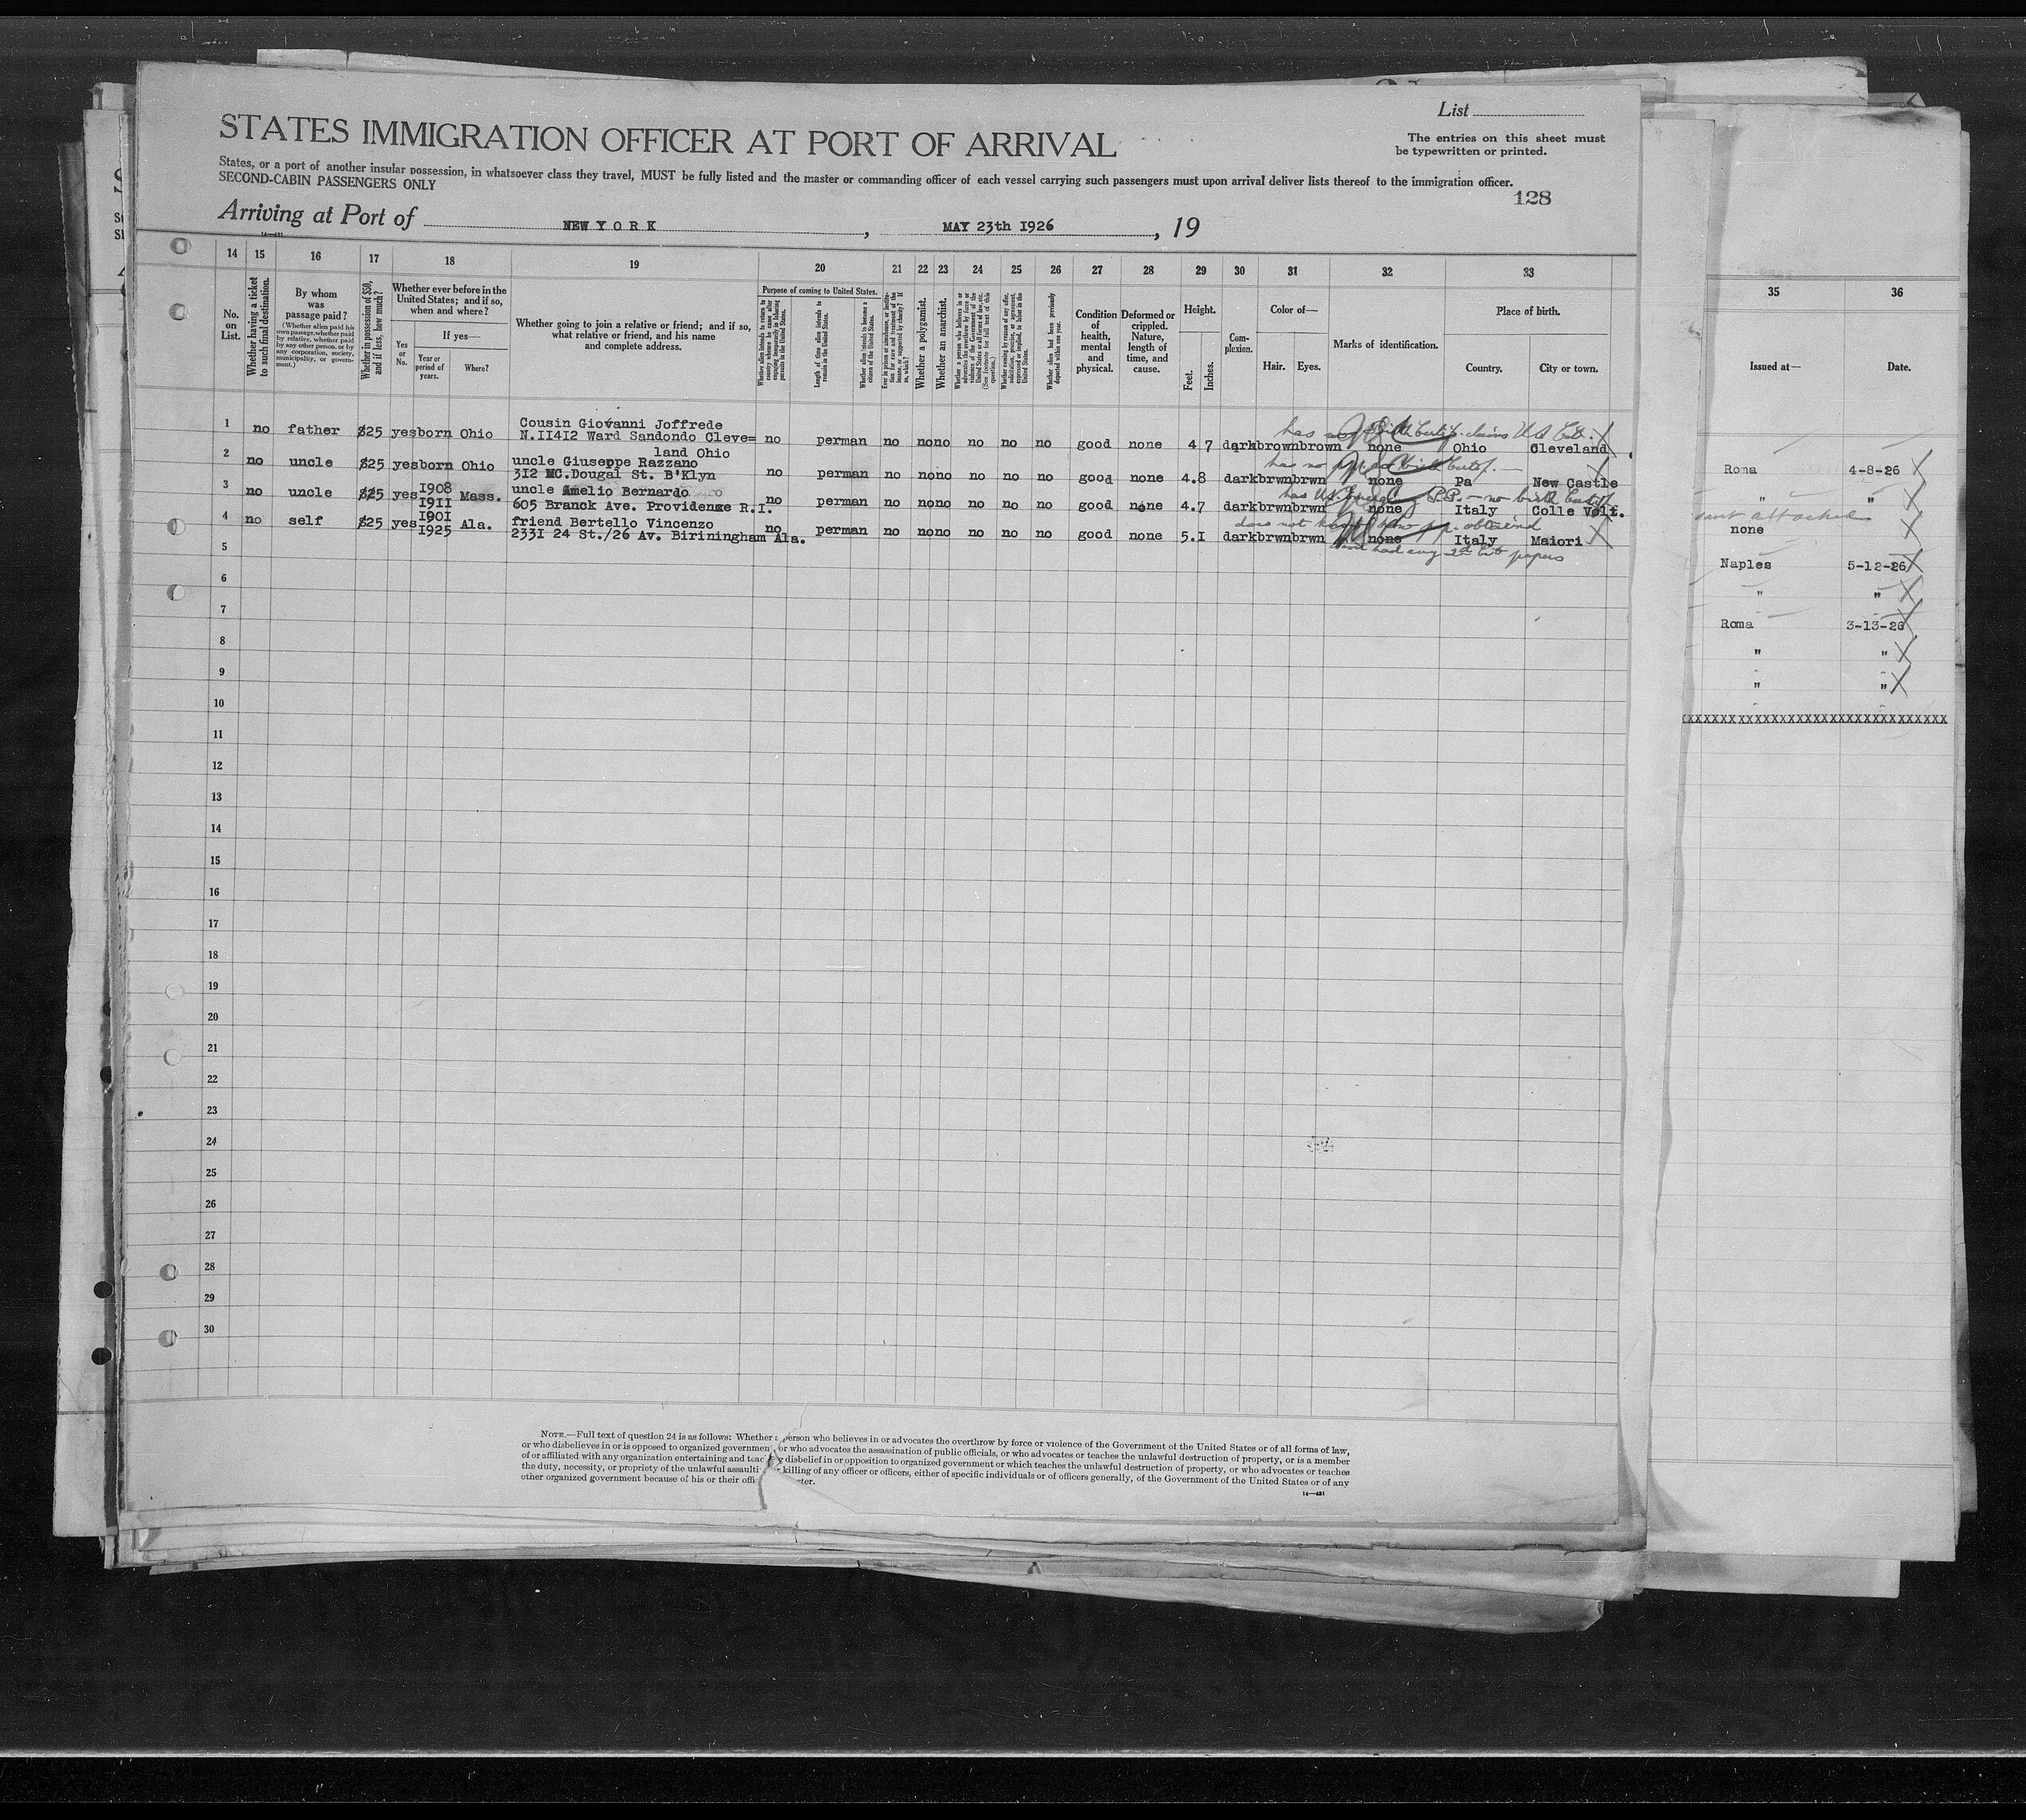 List
STATES IMMIGRATION OFFICER AT PORT OF ARRIVAL
The entries on this sheet must
be typewritten or printed.
States, or a port of another insular possession, in whatsoever class they travel, MUST be fully listed and the master or commanding officer of each vessel carrying such passengers must upon arrival deliver lists thereof to the immigration officer.
SECOND-CABIN PASSENGERS ONLY
128
Arriving at Port of NEW YORK, MAY 23th 1926, 19
14 15 16 17 18 19 20 21 22 23 24 25 26 27 28 29 30 31 32 33
No. on List.
Whether having a ticket to such final destination.
By whom was passage paid?
(Whether alien paid his own passage, whether paid by relative, whether paid by any other person, or by any corporation, society, municipality, or government.)
Whether in possession of $50, and if less, how much?
Whether ever before in the United States; and if so, when and where?
Yes or No.
If yes—
Year or period of years.
Where?
Whether going to join a relative or friend; and if so, what relative or friend, and his name and complete address.
Purpose of coming to United States.
Length of time alien intends to remain in the United States.
Whether alien intends to become a citizen of the United States.
Whether a polygamist.
Whether an anarchist.
Condition of health, mental and physical.
Deformed or crippled. Nature, length of time, and cause.
Height.
Feet.
Inches.
Complexion.
Color of—
Hair.
Eyes.
Marks of identification.
Place of birth.
Country.
City or town.
1 no father $25 yes born Ohio Cousin Giovanni Joffrede
N.11412 Ward Sandondo Cleve=
land Ohio
no perman no no no no no no good none 4 7 dark brown brown none Ohio Cleveland
2 no uncle $25 yes born Ohio uncle Giuseppe Razzano
312 MC.Dougal St. B'Klyn
no perman no no no no no no good none 4.8 dark brwn brwn none Pa New Castle
3 no uncle $25 yes 1908 1911 Mass. uncle Amelio Bernardo
605 Branck Ave. Providense R.I.
no perman no no no no no no good none 4.7 dark brwn brwn none Italy Colle Volt.
4 no self $25 yes 1901 1925 Ala. friend Bertello Vincenzo
2331 24 St./26 Av. Biriningham Ala.
no perman no no no no no no good none 5.1 dark brwn brwn none Italy Maiori
5
6
7
8
9
10
11
12
13
14
15
16
17
18
19
20
21
22
23
24
25
26
27
28
29
30
NOTE.—Full text of question 24 is as follows: Whether a person who believes in or advocates the overthrow by force or violence of the Government of the United States or of all forms of law,
or who disbelieves in or is opposed to organized government, or who advocates the assassination of public officials, or who advocates or teaches the unlawful destruction of property, or is a member
of or affiliated with any organization entertaining and teaching disbelief in or opposition to organized government or which teaches the unlawful destruction of property, or who advocates or teaches
the duty, necessity, or propriety of the unlawful assaulting or killing of any officer or officers, either of specific individuals or of officers generally, of the Government of the United States or of any
other organized government because of his or their official character.
14—421
35 36
Issued at— Date.
Roma 4-8-26
" "
attached
none
Naples 5-12-26
" "
Roma 3-13-26
" "
" "